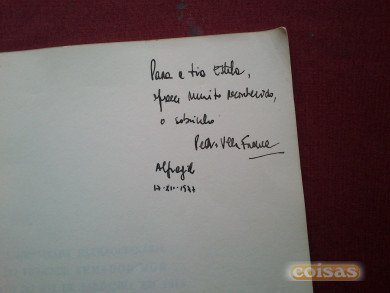 Para a tia Estela,
oferece muito reconhecido,
o sobrinho
Pedro
Alfragide
17-XII-1977
coisas